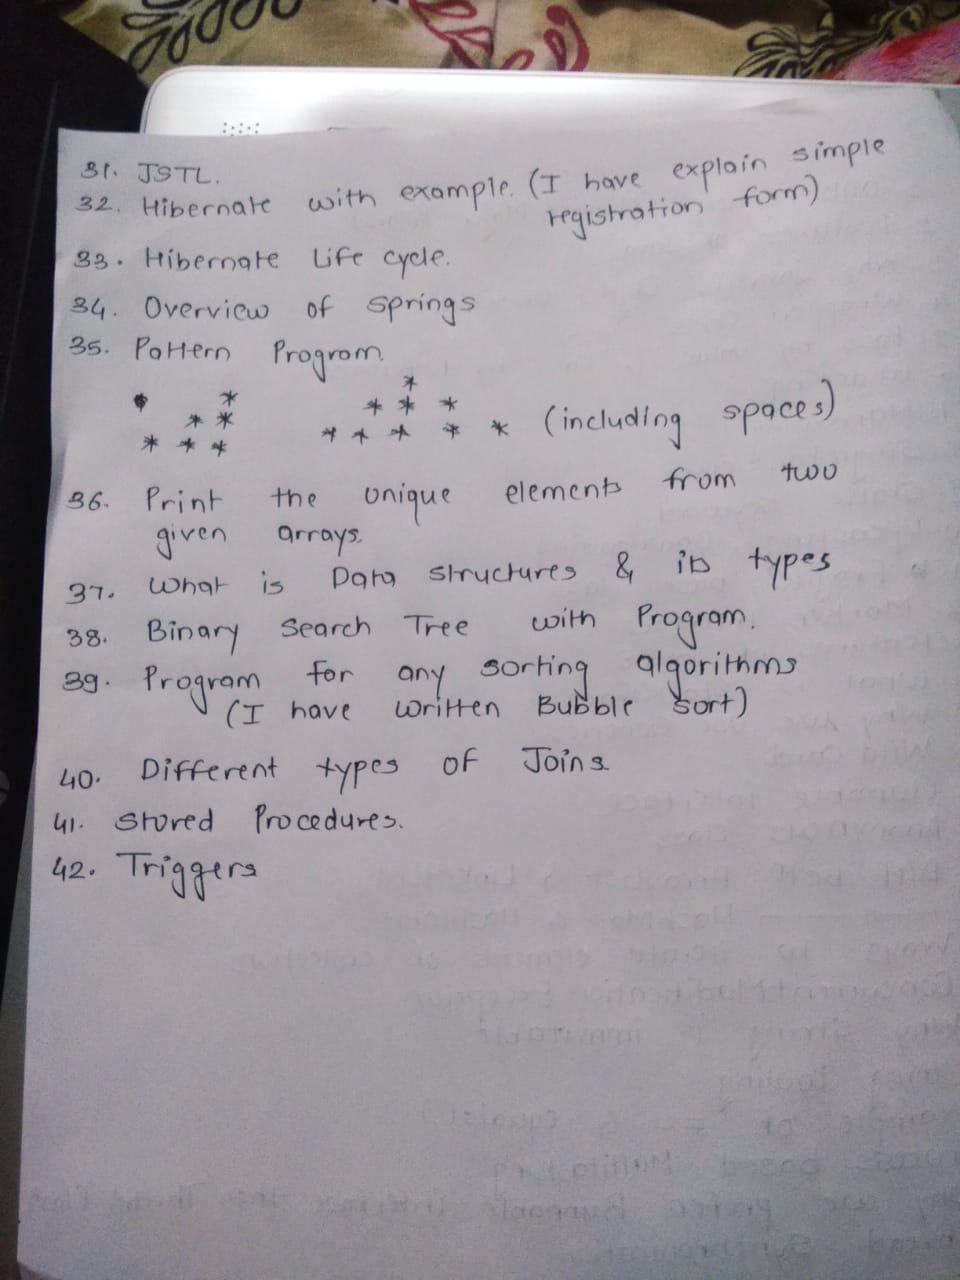 31. JSTL.
32. Hibernate with example. (I have explain simple
registration form)
33. Hibernate Life cycle.
34. Overview of springs
35. Pattern Program.
* *
* * * * *
* * * * * * * * (including spaces)
36. Print the unique elements from two
given arrays.
37. What is Data structures & its types
38. Binary Search Tree with Program.
39. Program for any sorting algorithms
(I have written Bubble sort)
40. Different types of Joins
41. Stored Procedures.
42. Triggers